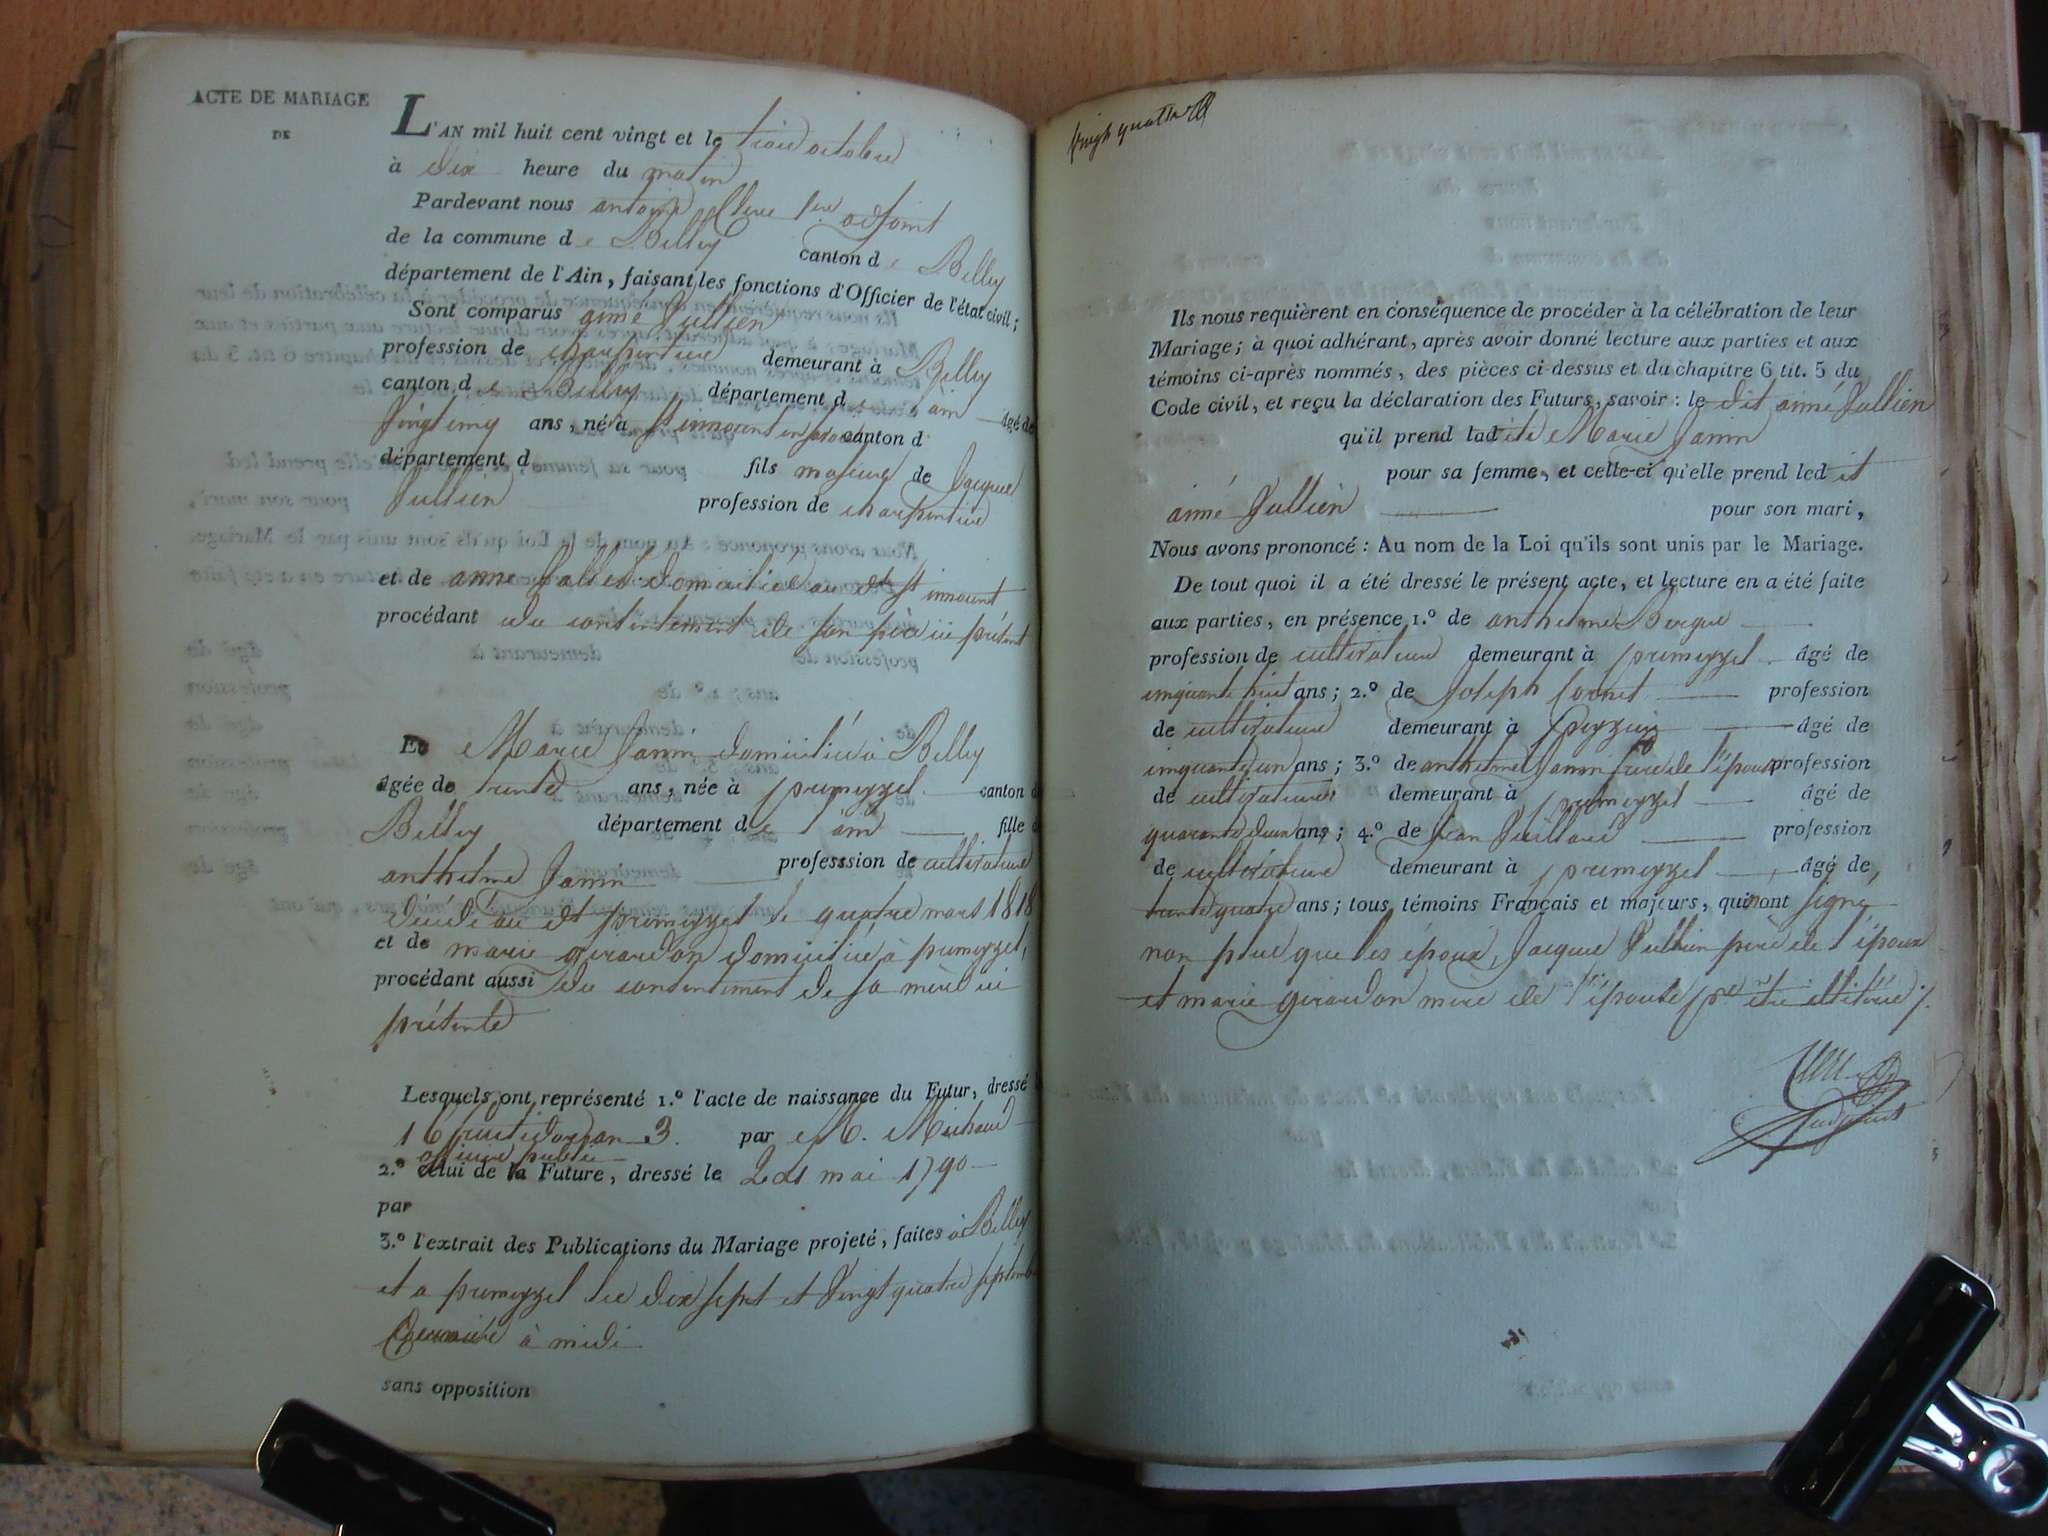 ACTE DE MARIAGE
DE
L'AN mil huit cent vingt et le trois octobre
à dix heure du matin
Pardevant nous antoine 1er adjoint
de la commune de Belley canton de Belley
département de l'Ain, faisant les fonctions d'Officier de l'état civil;
Sont comparus aimé Jullien
profession de charpentier demeurant à Belley
canton de Belley département de l'ain âgé de
vingt cinq ans, né à St innocent en canton d
département d fils majeur de Jacques
Jullien profession de charpentier
et de anne domiciliés au dt St innocent
procédant du consentement de son père ici présent
Et Marie Janin domiciliée à Belley
âgée de trente ans, née à prumeyzel canton d
Belley département de l'ain fille d
anthelme Janin professsion de cultivateur
décédé au dt prumeyzel le quatre mars 1818
et de marie girardon domiciliée à prumeyzel,
procédant aussi du consentement de sa mère ici
présente
Lesquels ont représenté 1.º l'acte de naissance du Futur, dressé
16 an 3. par M. Michaud
officier public
2.º celui de la Future, dressé le 2 mai 1790
par
3.º l'extrait des Publications du Mariage projeté, faites à Belley
et a prumeyzel les dix sept et vingt quatre septembre
dernier à midi
sans opposition
vingt quatre
Ils nous requièrent en conséquence de procéder à la célébration de leur
Mariage; à quoi adhérant, après avoir donné lecture aux parties et aux
témoins ci-après nommés, des pièces ci-dessus et du chapitre 6 tit. 5 du
Code civil, et reçu la déclaration des Futurs, savoir : le dit aimé Jullien
qu'il prend ladite Marie Janin
pour sa femme, et celle-ci qu'elle prend ledit
aimé Jullien pour son mari,
Nous avons prononcé : Au nom de la Loi qu'ils sont unis par le Mariage.
De tout quoi il a été dressé le présent acte, et lecture en a été faite
aux parties, en présence 1.º de anthelme Bergue
profession de cultivateur demeurant à prumeyzel âgé de
cinquante huit ans; 2.º de Joseph Cornet profession
de cultivateur demeurant à Peyzieu âgé de
cinquante un ans; 3.º de anthelme Janin frère de l'épouse profession
de cultivateur demeurant à prumeyzel âgé de
quarante deux ans; 4.º de Jean Juillard profession
de cultivateur demeurant à prumeyzel âgé de
trente quatre ans; tous témoins Français et majeurs, qui n'ont signé
non plus que les époux, Jacques Jullien père de l'époux
et marie girardon mere de l'épouse pr être illitérés ./.